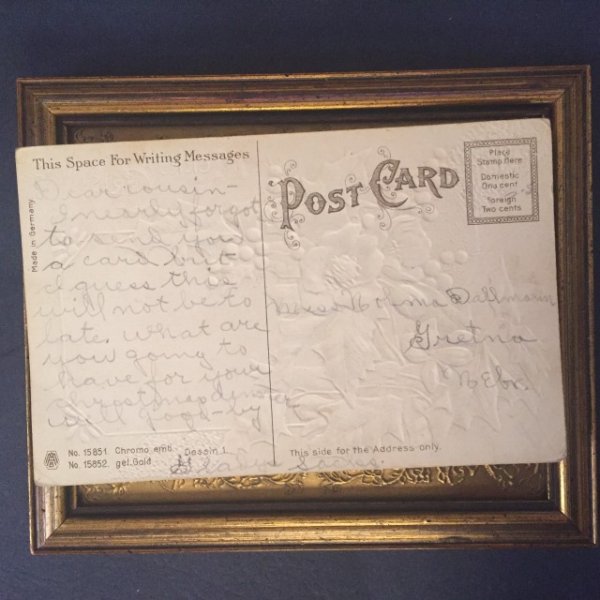 This Space For Writing Messages
Made in Germany
Dear cousin-
I nearly forgot
to send you
a card but
I guess this
will not be to
late. What are
you going to
have for your
Christmas dinner
well goga-by
No. 15851. Chromo emb. Dessin 1.
No. 15852. gel. Gold
POST CARD
Place
Stamp Here
Domestic
One cent
Foreign
Two cents
Miss Norma Dallmann
Gretna
Nebr.
This side for the Address only.